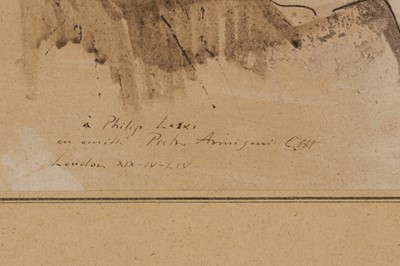 à Philip Laski
en amitié Pietro Annigoni
London XIX-IV-LIV